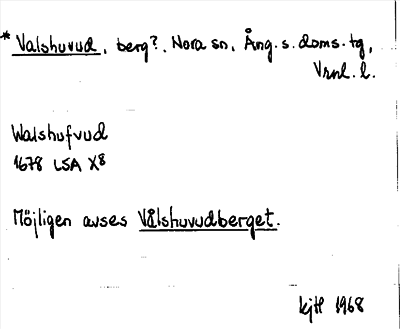 * Valshuvud, berg?, Nora sn, Ång. s. doms. tg,
Vrnl. l.
Walshufvud
1678 LSA X8
Möjligen avses Vålshuvudberget.
kjtl 1968